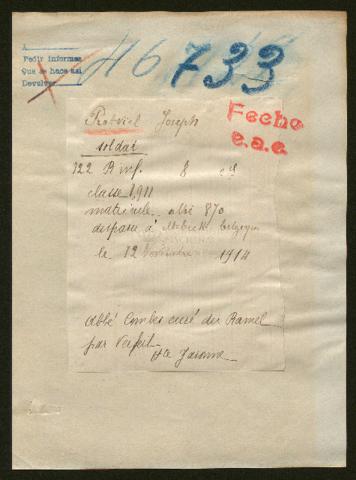 A
Pedir informes
Que se hace asi
Devolver
733
Fecho
e.a.e.
Joseph
soldat
122 R inf. 8 cie
classe 1911
matricule 870
disparu à belgique
le 12 Novembre 1914
Abbé Combes curé du Ramel
par Verfeil
Hte Garonne